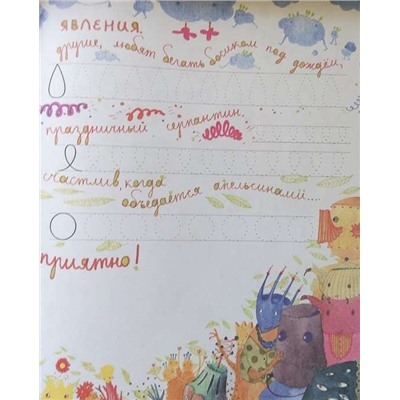 явления.
другие, любят бегать босиком под дождём,
праздничный серпантин.
счастлив, когда
объедается апельсинами....
приятно!